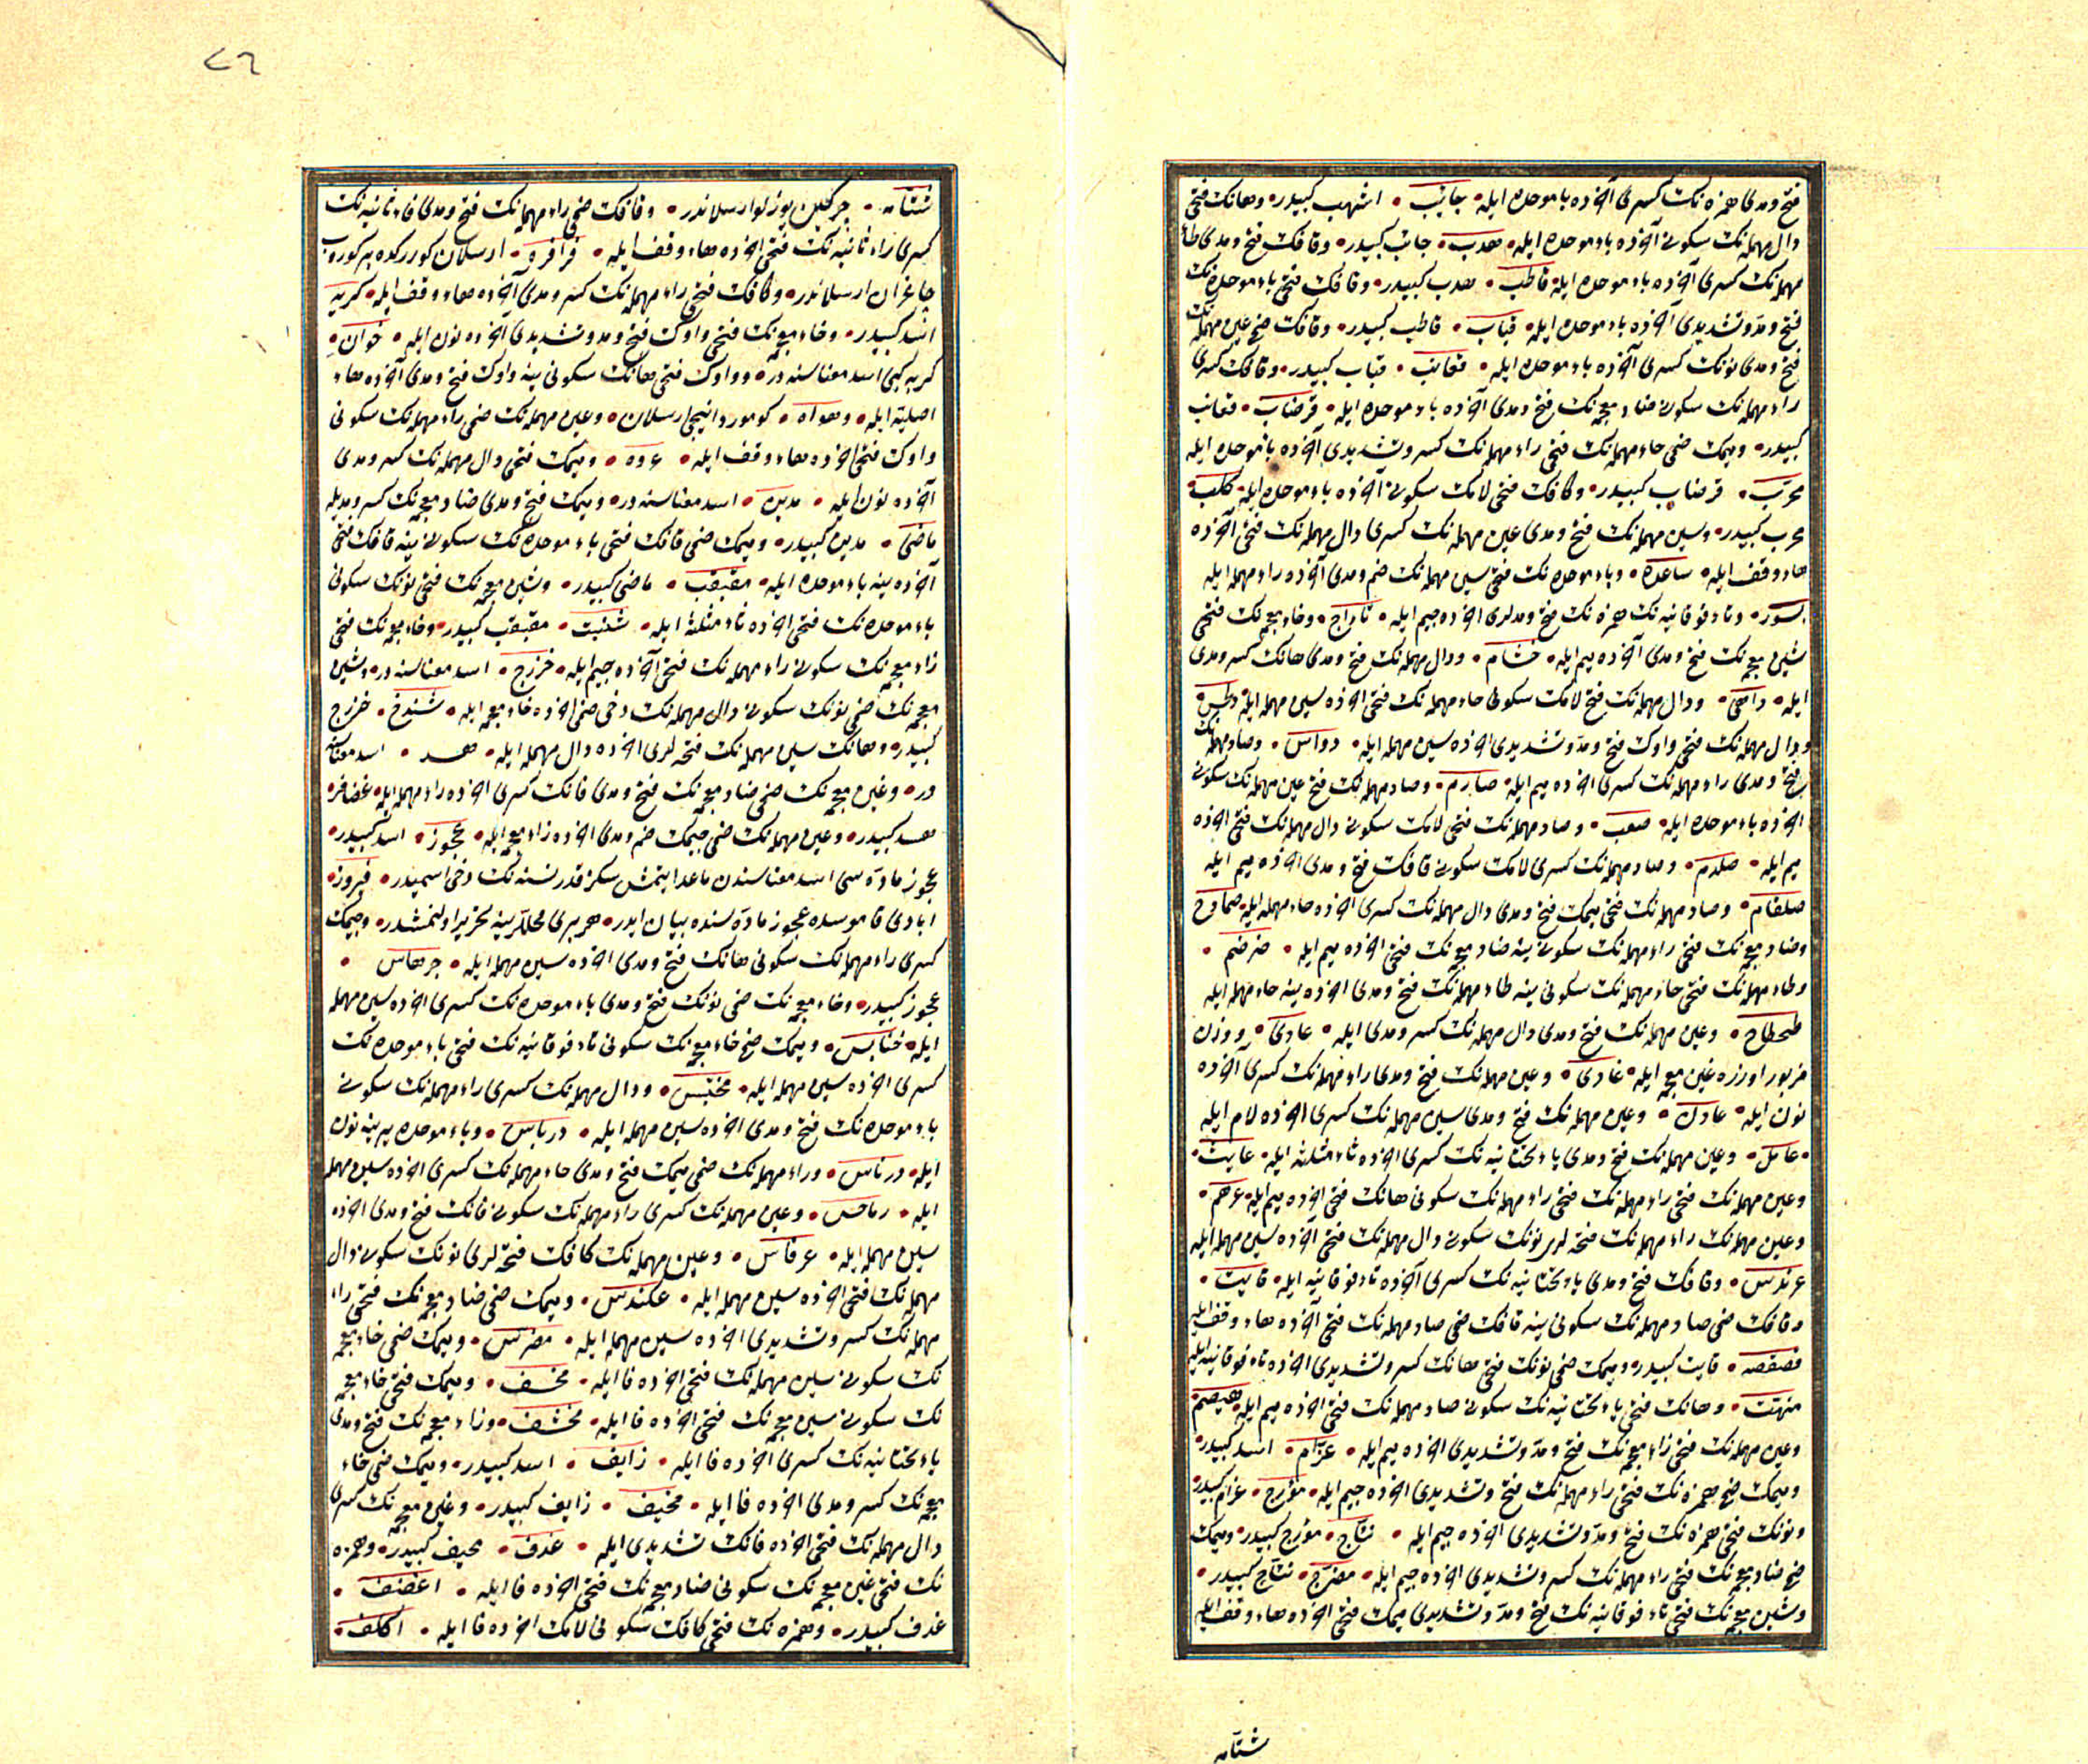 فتح ومدى همزه نك كسرى آخرده با موحده ايله جائب اشهب كبيدر وهانك فتحى
دال مهمله نك سكونى آخرده باء موحده ايله هدب جائب كبيدر وقافك فتح ومدى طاء
مهمله نك كسرى آخرده باء موحده ايله قاطب هدب كبيدر وقافك فتحى باء موحده نك
فتح ومد وتشديدى آخرده باء موحده ايله قباب قاطب كبيدر وقافك ضمى عين مهمله نك
فتح ومدى نونك كسرى آخرده باء موحده ايله قعانب قباب كبيدر وقافك كسرى
راء مهمله نك سكونى ضاد معجه نك فتح ومدى آخرده باء موحده ايله قرضاب قعانب
كبيدر وميمك ضمى حاء مهمله نك فتحى راء مهمله نك كسر وتشديدى آخرده باء موحده ايله
محرب قرضاب كبيدر وكافك فتحى لامك سكونى آخرده باء موحده ايله كلب
محرب كبيدر وسين مهمله نك فتح ومدى عين مهمله نك كسرى دال مهمله نك فتحى آخرده
هاء وقف ايله ساعده وباء موحده نك فتحى سين مهمله نك ضم ومدى آخرده راء مهمله ايله
بسور وتاء فوقانيه نك همزه نك فتح ومدلرى اخرده جيم ايله تاراج وخاء معجه نك فتحى
شين معجه نك فتح ومدى آخرده ميم ايله خشام ودال مهمله نك فتح ومدى هانك كسر ومدى
ايله داهى ودال مهمله نك فتح لامك سكونى حاء مهمله نك فتحى اخرده سين مهمله ايله دلحس
ودال مهمله نك فتحى واوك فتح ومد وتشديدى اخرده سين مهمله ايله دواس وصاد مهمله نك
فتح ومدى راء مهمله نك كسرى اخرده ميم ايله صارم وصاد مهمله نك فتح عين مهمله نك سكونى
اخرده باء موحده ايله صعب وصاد مهمله نك فتحى لامك سكونى دال مهمله نك فتحى اخرده
ميم ايله صلدم وصاد مهمله نك كسرى لامك سكونى قافك فتح ومدى اخرده ميم ايله
صلقام وصاد مهمله نك فتحى ميمك فتح ومدى دال مهمله نك كسرى اخرده حاء مهمله ايله صمادح
وضاد معجه نك فتحى راء مهمله نك سكونى ينه ضاد معجه نك فتحى اخرده ميم ايله ضرضم
وطاء مهمله نك فتحى حاء مهمله نك سكونى ينه طاء مهمله نك فتح ومدى اخرده ينه حاء مهمله ايله
طحطاح وعين مهمله نك فتح ومدى دال مهمله نك كسر ومدى ايله عادى ووزن
مزبور اوزره غين معجه ايله غادى وعين مهمله نك فتح ومدى راء مهمله نك كسرى آخرده
نون ايله عارن وعين مهمله نك فتح ومدى سين مهمله نك كسرى اخرده لام ايله
عاسل وعين مهمله نك فتح ومدى ياء تحتانيه نك كسرى اخرده ثاء مثلثه ايله عايث
وعين مهمله نك فتحى راء مهمله نك فتحى راء مهمله نك سكونى هانك فتحى اخرده ميم ايله عرهم
وعين مهمله نك راء مهمله نك فتحه لرى نونك سكونى دال مهمله نك فتحى آخرده سين مهمله ايله
عرندس وقافك فتح ومدى ياء تحتانيه نك كسرى آخرده تاء فوقانيه ايله قايت
وقافك ضمى صاد مهمله نك سكونى ينه قافك ضمى صاد مهمله نك فتحى آخرده هاء وقف ايله
قصقصه قايت كبيدر وميمك ضمى نونك فتحى هانك كسر وتشديدى اخرده تاء فوقانيه ايله
منهت وهانك فتحى ياء تحتانيه نك سكونى صاد مهمله نك فتحى اخرده ميم ايله هيصم
وعين مهمله نك فتحى زاء معجه نك فتح ومد وتشديدى اخرده ميم ايله عزام اسد كبيدر
وميمك ضمى همزه نك فتحى راء مهمله نك فتح وتشديدى اخرده جيم ايله مؤرج عزام كبيدر
ونونك فتحى همزه نك فتح ومد وتشديدى اخرده جيم ايله نئاج مؤرج كبيدر وميمك
ضمى ضاد معجه نك فتحى راء مهمله نك كسر وتشديدى اخرده جيم ايله مضرج نئاج كبيدر
وشين معجه نك فتحى تاء فوقانيه نك فتح ومد وتشديدى ميمك فتحى اخرده هاء وقف ايله
شتامه
٧٦
شتامه چركين يوزلو ارسلاندر وفافك ضمى راء مهمله نك فتح ومدى فاء ثانيه نك
كسرى راء ثانيه نك فتحى اخرده هاء وقف ايله فرافره ارسلان كورركده بر كوروب
چاغران ارسلاندر وكافك فتحى راء مهمله نك كسر ومدى آخرده هاء وقف ايله كريه
اسد كبيدر وخاء معجه نك فتحى واوك فتح ومد وتشديدى اخرده نون ايله خوان
كريه كبى اسد معناسنه در وواوك فتحى هانك سكونى ينه واوك فتح ومدى آخرده هاء
اصليه ايله وهواه كومورد انيجى ارسلان وعين مهمله نك ضمى راء مهمله نك سكونى
واوك فتحى اخرده هاء وقف ايله عروه وميمك فتحى دال مهمله نك كسر ومدى
آخرده نون ايله مدين اسد معناسنه در وميمك فتح ومدى ضاد معجه نك كسر ومديله
ماضى مدين كبيدر وميمك ضمى قافك فتحى باء موحده نك سكونى ينه قافك فتحى
آخرده ينه باء موحده ايله مقبقب ماضى كبيدر وشين معجه نك فتحى نونك سكونى
باء موحده نك فتحى اخرده ثاء مثلثه ايله شنبث مقبقب كبيدر وخاء معجه نك فتحى
زاء معجه نك سكونى راء مهمله نك فتحى آخرده جيم ايله خزرج اسد معناسنه در وشين
معجه نك ضمى نونك سكونى دال مهمله نك دخى ضمى اخرده خاء معجه ايله شندخ خزرج
كبيدر وهانك سين مهمله نك فتحه لرى اخرده دال مهمله ايله هسد اسد معناسنه
در وغين معجه نك ضمى ضاد معجه نك فتح ومدى فانك كسرى اخرده راء مهمله ايله غضافر
هسد كبيدر وعين مهمله نك ضمى جيمك ضم ومدى اخرده زاء معجه ايله عجوز اسد كبيدر
عجوز ماده سى اسد معناسندن ماعدا يتمش سكز قدر نسنه نك دخى اسميدر فيروز
ابادى قاموسده عجوز ماده سنده بيان ايدر هر برى محللرينه تحرير اولنمشدر وجيمك
كسرى راء مهمله نك سكونى هانك فتح ومدى اخرده سين مهمله ايله جرهاس
عجوز كبيدر وخاء معجه نك ضمى نونك فتح ومدى باء موحده نك كسرى اخرده سين مهمله
ايله خنابس وميمك ضمى خاء معجه نك سكونى تاء فوقانيه نك فتحى باء موحده نك
كسرى اخرده سين مهمله ايله مختبس ودال مهمله نك كسرى راء مهمله نك سكونى
باء موحده نك فتح ومدى اخرده سين مهمله ايله درباس وباء موحده يرينه نون
ايله درناس وراء مهمله نك ضمى ميمك فتح ومدى حاء مهمله نك كسرى اخرده سين مهمله
ايله رماحس وعين مهمله نك كسرى راء مهمله نك سكونى فانك فتح ومدى اخرده
سين مهمله ايله عرفاس وعين مهمله نك كافك فتحه لرى نونك سكونى دال
مهمله نك فتحى اخرده سين مهمله ايله عكندس وميمك ضمى ضاد معجه نك فتحى راء
مهمله نك كسر وتشديدى اخرده سين مهمله ايله مضرس وميمك ضمى خاء معجه
نك سكونى سين مهمله نك فتحى اخرده فا ايله مخسف وميمك فتحى خاء معجه
نك سكونى سين معجه نك فتحى اخرده فا ايله مخشف وزاء معجه نك فتح ومدى
ياء تحتانيه نك كسرى اخرده فا ايله زايف اسد كبيدر وميمك ضمى خاء
معجه نك كسر ومدى اخرده فا ايله مخيف زايف كبيدر وغين معجه نك كسرى
دال مهمله نك فتحى اخرده فانك تشديدى ايله غدف مخيف كبيدر وهمزه
نك فتحى غين معجه نك سكونى ضاد معجه نك فتحى اخرده فا ايله اغضف
غدف كبيدر وهمزه نك فتحى كافك سكونى لامك اخرده فا ايله اكلف